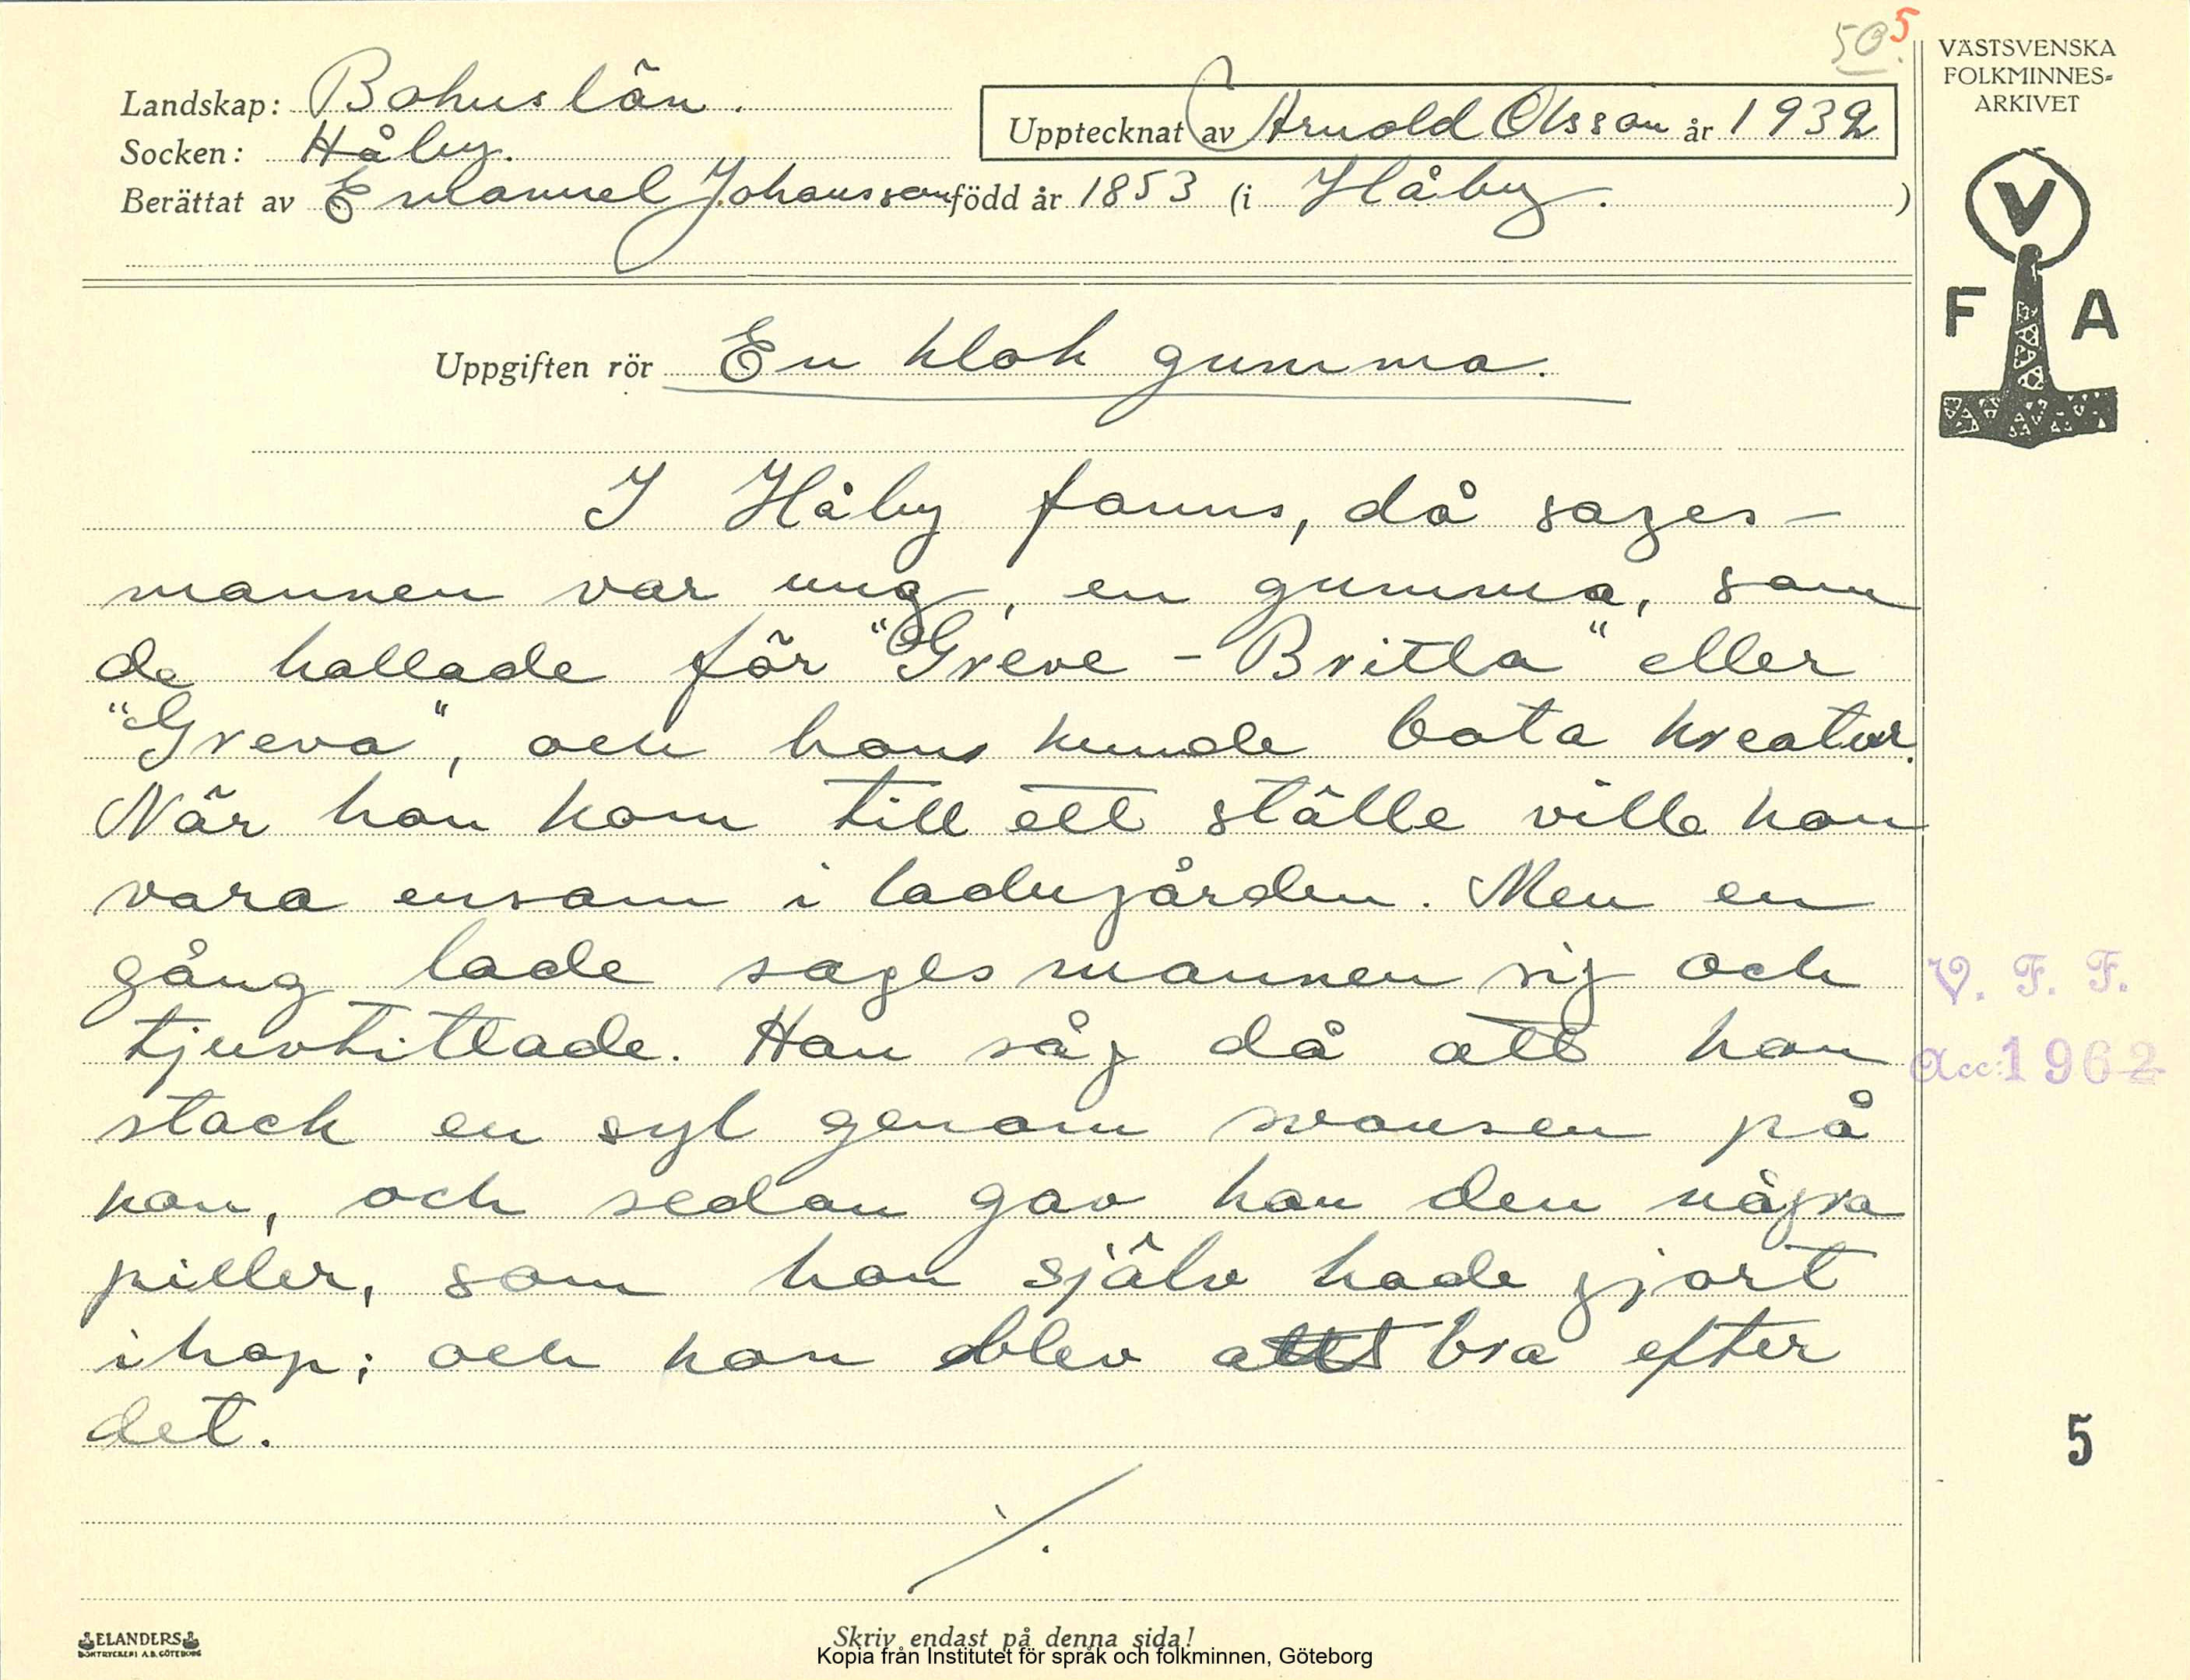 505
VÄSTSVENSKA
FOLKMINNES=
ARKIVET
Landskap: Bohuslän.
Upptecknat av Arnold Olsson år 1932
Socken: Håby.
Berättat av Emanuel Johansson född år 1853 (i Håby. )
V
F A
Uppgiften rör En klok gumma.
I Håby fanns, då sages-
mannen var ung, en gumma, som
de kallade för "Greve-Britta" eller
"Greva", och hon kunde bota kreatur.
När hon kom till ett ställe ville hon
vara ensam i ladugården. Men en
gång lade sagesmannen sig och
tjuvtittade. Han såg då att hon
stack en syl genom svansen på
kon, och sedan gav hon den några
piller, som hon själv hade gjort
ihop; och kon blev bra efter
det.
V. F. F.
Acc. 1962
5
ELANDERS
BOKTRYCKERI A.B. GÖTEBORG
Skriv endast på denna sida!
Kopia från Institutet för språk och folkminnen, Göteborg